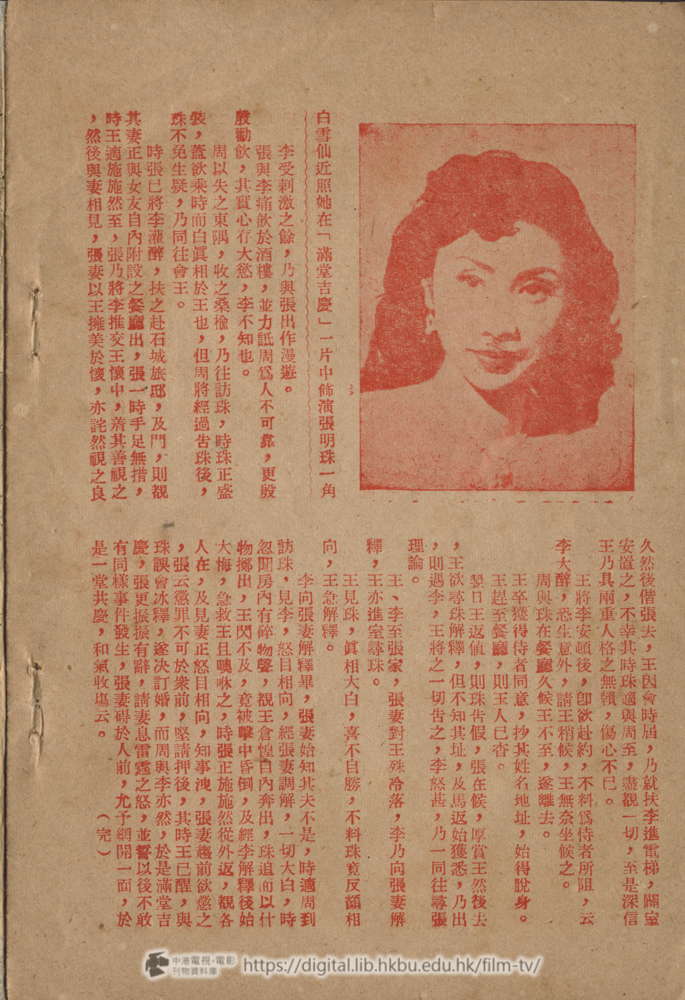 白雪仙近照她在「滿堂吉慶」一片中飾演張明珠一角
李受刺激之餘，乃與張出作漫遊。
張與李痛飲於酒樓，並力詆周爲人不可靠，更殷
殷勸飲，其實心存大慾，李不知也。
周以失之東隅，收之桑楡，乃往訪珠，時珠正盛
裝，蓋欲乘時而白眞相於王也，但周將經過告珠後，
珠不免生疑，乃同往會王。
時張已將李灌醉，扶之赴石城旅邸，及門，則覩
其妻正與女友自內附設之餐廳出，張一時手足無措，
時王適施施然至，張乃將李推交王懷中，着其善視之
，然後與妻相見，張妻以王擁美於懷，亦詫然視之良
久然後偕張去，王因會時屆，乃就扶李進電梯，闢室
安置之，不幸其時珠適與周至，盡覩一切，至是深信
王乃具兩重人格之無賴，傷心不已。
王將李安頓後，卽欲赴約，不料爲侍者所阻，云
李大醉，恐生意外，請王稍候，王無奈坐候之。
周與珠在餐廳久候王不至，遂離去。
王卒獲得侍者同意，抄其姓名地址，始得脫身。
王趕至餐廳，則玉人已杳。
翌日王返値，則珠告假，張在候，厚賞王然後去
，王欲尋珠解釋，但不知其址，及馬返始獲悉，乃出
，則遇李，王將之一切告之，李怒甚，乃一同往尋張
理論。
王、李至張家，張妻對王殊冷落，李乃向張妻解
釋，王亦進室尋珠。
王見珠，眞相大白，喜不自勝，不料珠竟反顏相
向，王急解釋。
李向張妻解釋畢，張妻始知其夫不是，時適周到
訪珠，見李，怒目相向，經張妻調解，一切大白，時
忽聞房內有碎物聲，覩王倉惶自內奔出，珠追而以什
物擲出，王閃不及，竟被擊中昏倒，及經李解釋後始
大悔，急救王且噢咻之，時張正施施然從外返，覩各
人在，及見妻正怒目相向，知事洩，張妻趨前欲懲之
，張云懲罪不可於衆前，堅請押後，其時王已醒，與
珠誤會冰釋，遂決訂婚，而周與李亦然，於是滿堂吉
慶，張更振振有辭，請妻息雷霆之怒，並誓以後不敢
有同樣事件發生，張妻碍於人前，尤予網開一面，於
是一堂共慶，和氣收塲云。
（完）
中港電視、電影
刊物資料庫
https://digital.lib.hkbu.edu.hk/film-tv/